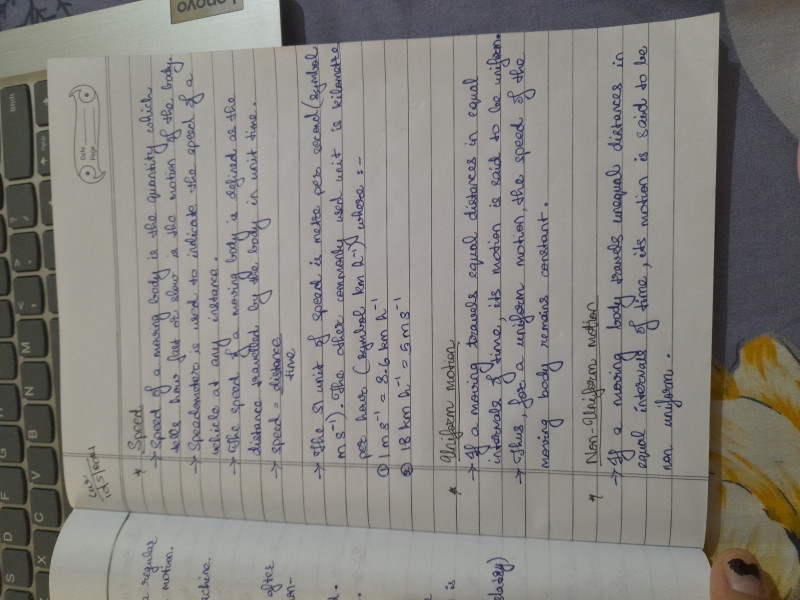 Lenovo
Date
Page
* Speed
→ Speed of a moving body is the quantity which
tells how fast or slow is the motion of the body.
→ Speedometer is used to indicate the speed of a
vehicle at any instance.
→ The speed of a moving body is defined as the
distance travelled by the body in unit time.
→ speed = distance
time
→ The SI unit of speed is metre per second (symbol
m s⁻¹). The other commonly used unit is kilometre
per hour (symbol km h⁻¹) where :-
① 1 m s⁻¹ = 3.6 km h⁻¹
② 18 km h⁻¹ = 5 m s⁻¹
* Uniform motion
→ If a moving travels equal distances in equal
intervals of time, its motion is said to be uniform.
→ Thus, for a uniform motion, the speed of the
moving body remains constant.
* Non-Uniform motion
→ If a moving body travels unequal distances in
equal intervals of time, its motion is said to be
non uniform.
a regular
motion.
achine.
after
on-
is